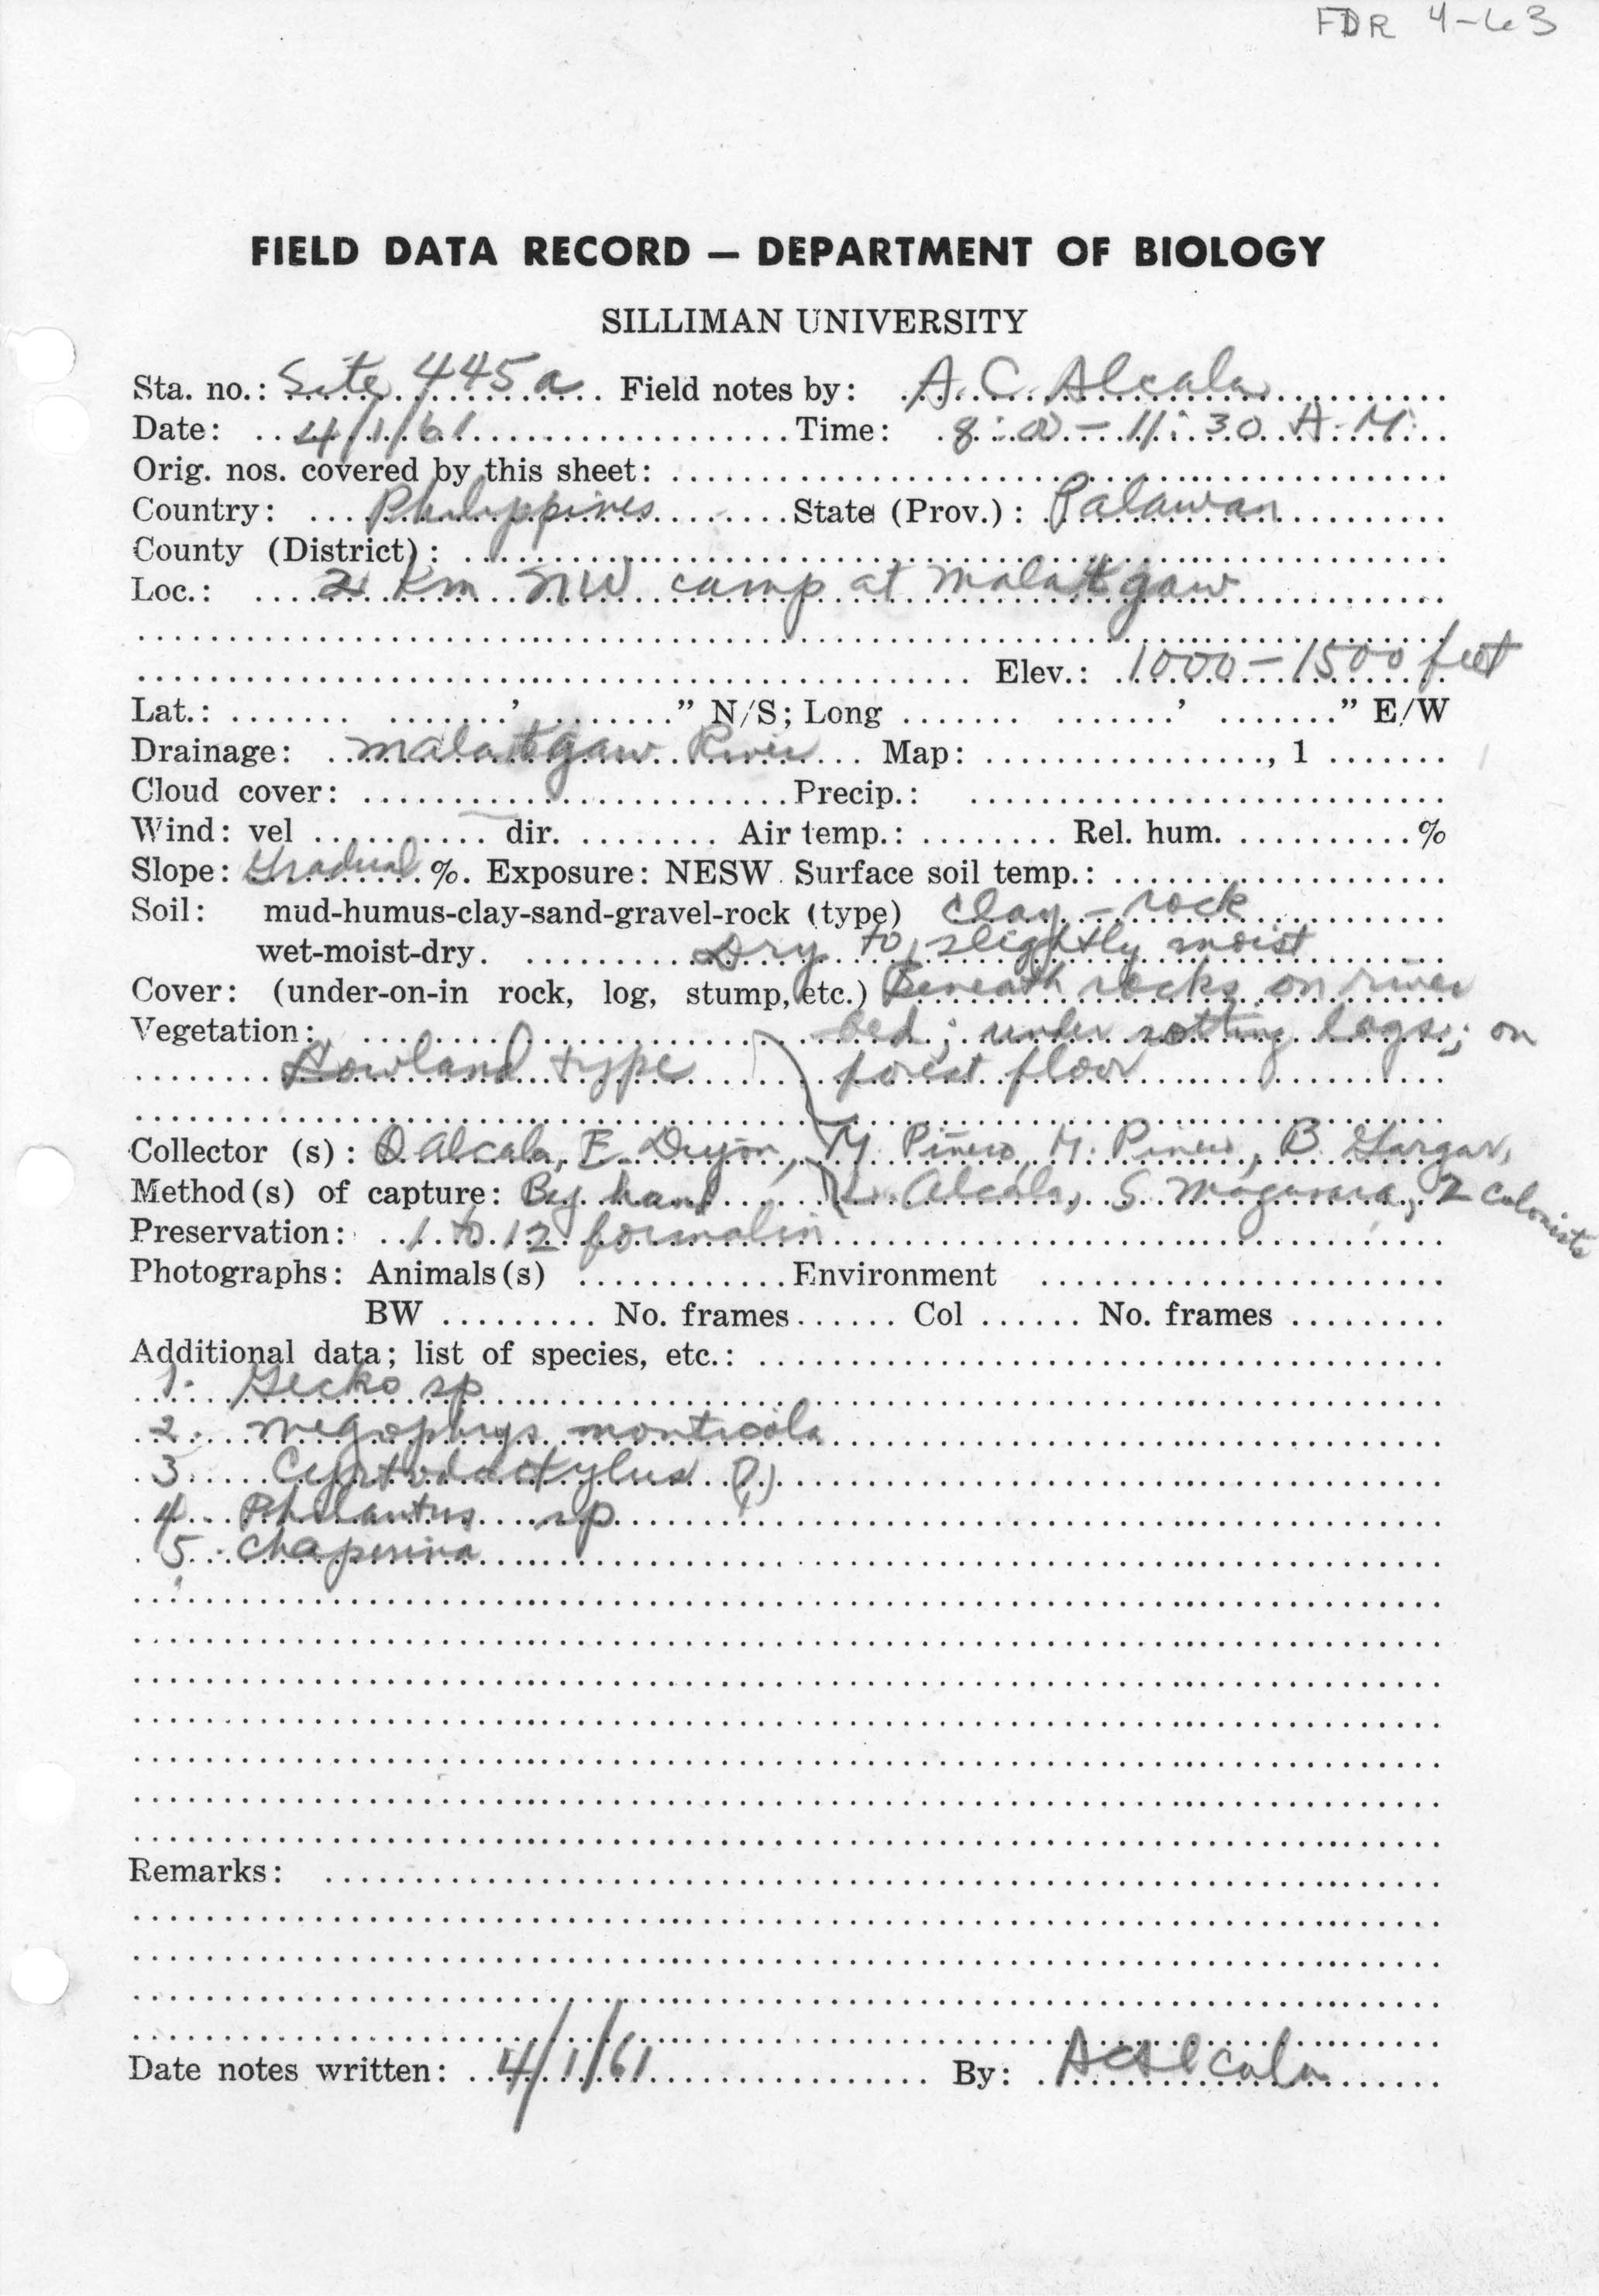 FDR 4-63
FIELD DATA RECORD — DEPARTMENT OF BIOLOGY
SILLIMAN UNIVERSITY
Sta. no.: Site 445a Field notes by: A.C. Alcala
Date: 4/1/61 Time: 8:00 - 11:30 A.M.
Orig. nos. covered by this sheet:
Country: Philippines State (Prov.): Palawan
County (District):
Loc.: 2 Km NW camp at Malatgaw
Elev.: 1000-1500 feet
Lat.: ' " N/S; Long ' " E/W
Drainage: Malatgaw River Map: , 1
Cloud cover: Precip.:
Wind: vel dir. Air temp.: Rel. hum. %
Slope: Gradual %. Exposure: NESW. Surface soil temp.:
Soil: mud-humus-clay-sand-gravel-rock (type) clay - rock
wet-moist-dry. Dry to slightly moist
Cover: (under-on-in rock, log, stump, etc.) Beneath rocks on river
Vegetation: bed; under rotting logs; on
Lowland type forest floor
Collector (s): Alcala, E. M. Pinero, M. Pinero, B. Gargar,
Method(s) of capture: By hand L. Alcala, S. Magusara, 2 colonists
Preservation: 1 to 12 formalin
Photographs: Animals(s) Environment
BW No. frames Col No. frames
Additional data; list of species, etc.:
1. Gecko sp
2. Megophrys monticola
3. Cyrtodactylus (?)
4. Philautus sp
5. Chaperina
Remarks:
Date notes written: 4/1/61 By: ACAlcala